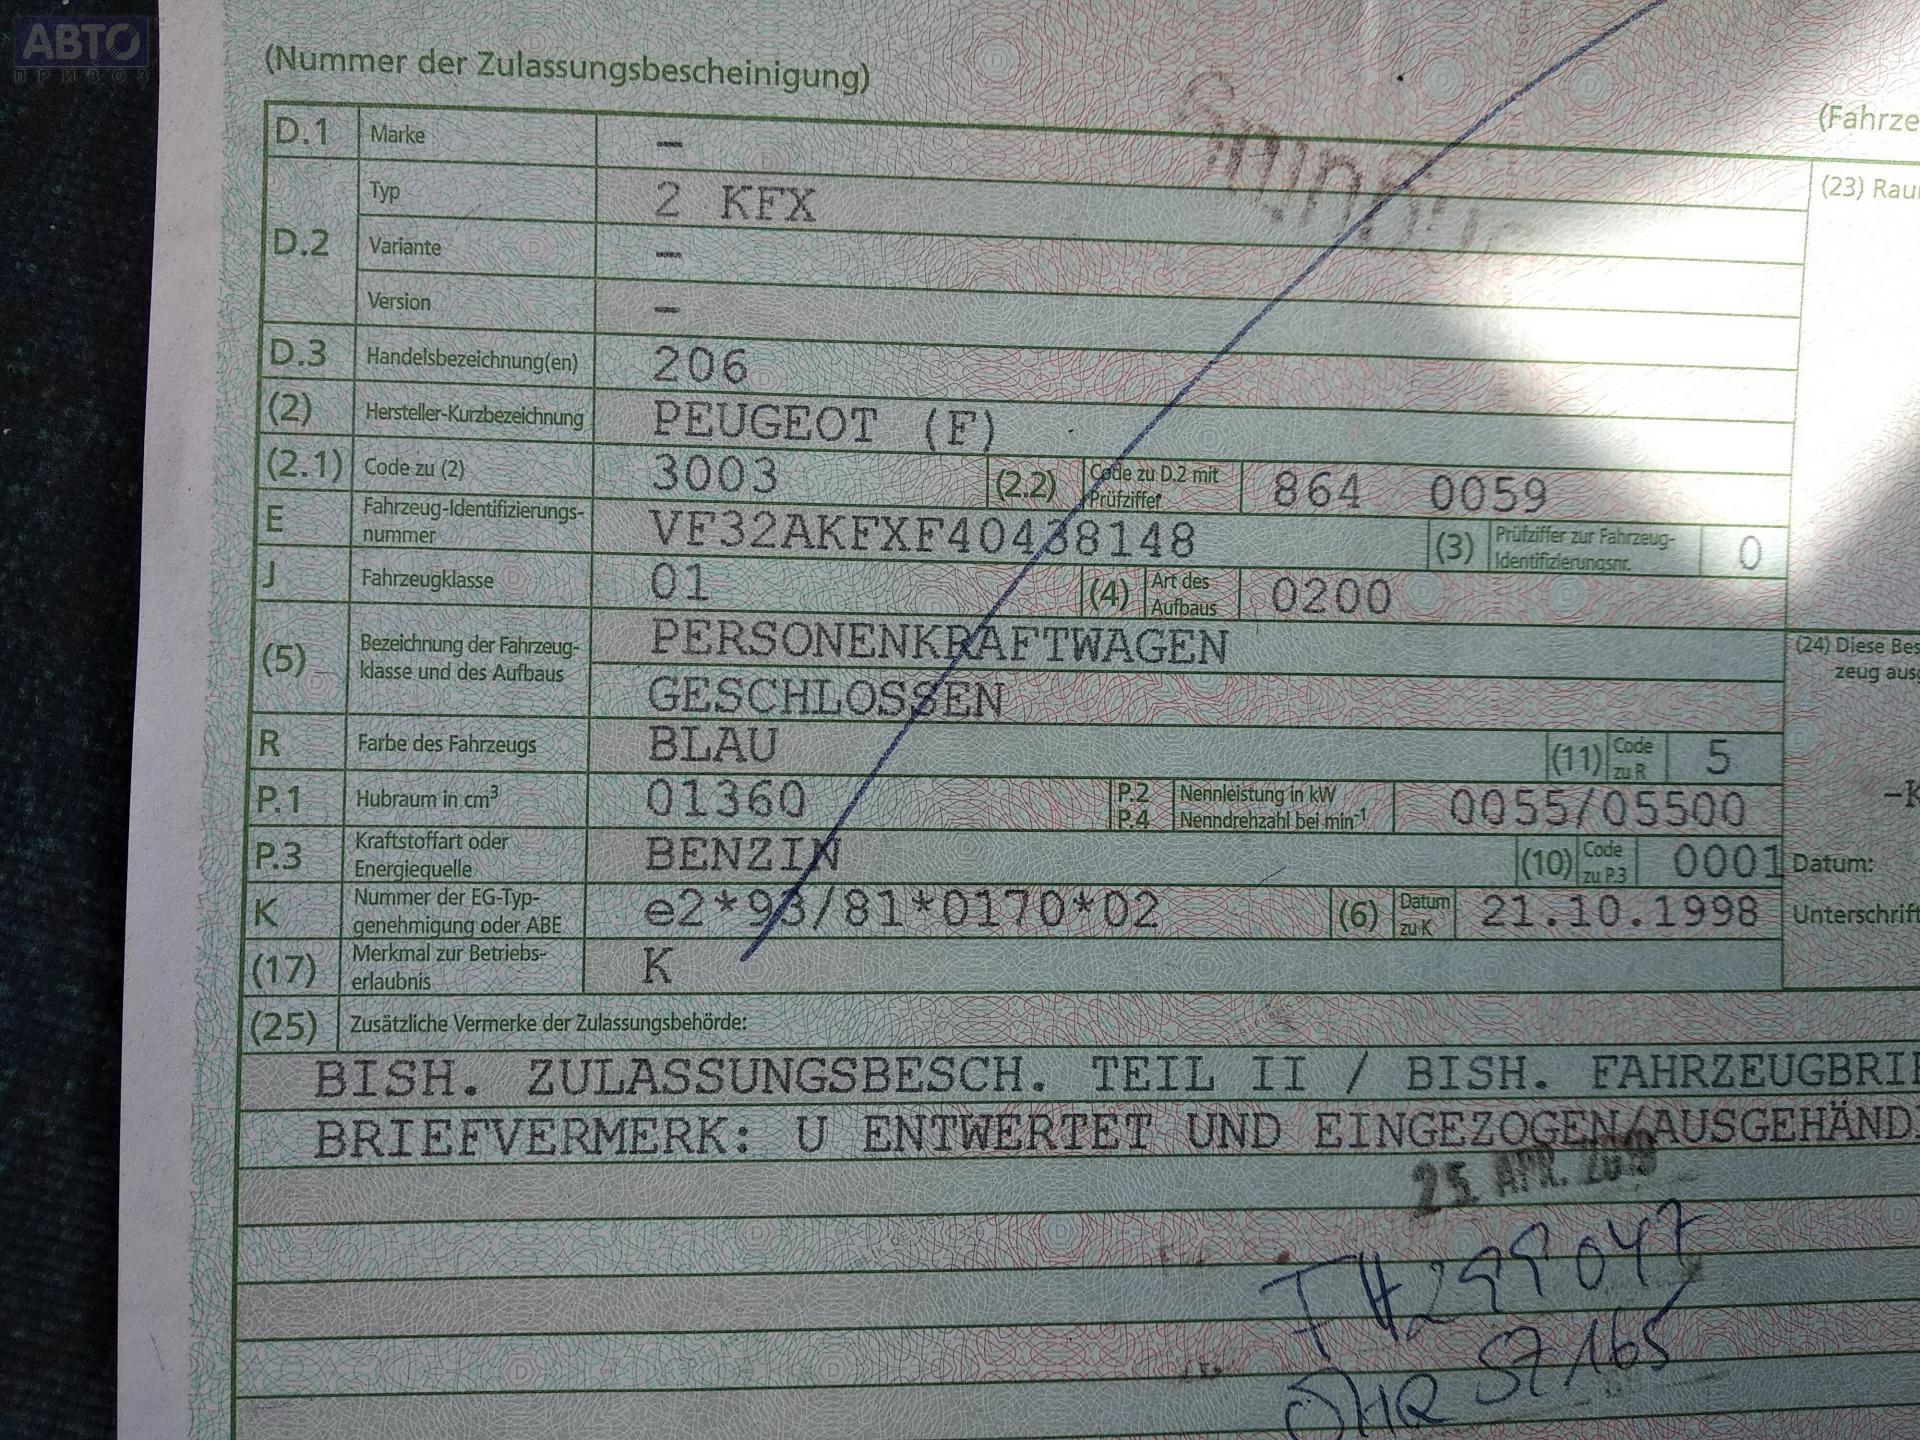 АВТО
ПРИВОЗ
(Nummer der Zulassungsbescheinigung)
(Fahrze
D.1 Marke –
D.2 Typ 2 KFX
(23) Rau
Variante –
Version –
D.3 Handelsbezeichnung(en) 206
(2) Hersteller-Kurzbezeichnung PEUGEOT (F)
(2.1) Code zu (2) 3003 (2.2) Code zu D.2 mit Prüfziffer 864 0059
E Fahrzeug-Identifizierungs-
nummer VF32AKFXF40438148 (3) Prüfziffer zur Fahrzeug-
Identifizierungsnr. 0
J Fahrzeugklasse 01 (4) Art des Aufbaus 0200
(5) Bezeichnung der Fahrzeug-
klasse und des Aufbaus
PERSONENKRAFTWAGEN
GESCHLOSSEN
(24) Diese Bes
zeug ausg
R Farbe des Fahrzeugs BLAU (11) Code zu R 5
P.1 Hubraum in cm³ 01360 P.2 Nennleistung in kW
P.4 Nenndrehzahl bei min⁻¹ 0055/05500
–K
P.3 Kraftstoffart oder
Energiequelle BENZIN (10) Code zu P.3 0001
Datum:
K Nummer der EG-Typ-
genehmigung oder ABE e2*93/81*0170*02 (6) Datum zu K 21.10.1998
Unterschrift
(17) Merkmal zur Betriebs-
erlaubnis K
(25) Zusätzliche Vermerke der Zulassungsbehörde:
BISH. ZULASSUNGSBESCH. TEIL II / BISH. FAHRZEUGBRI
BRIEFVERMERK: U ENTWERTET UND EINGEZOGEN/AUSGEHÄND
25. APR.
FH299047
ÖHR SZ165